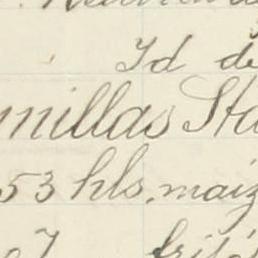 Id de
millas Sta
53 hls. maiz
07 frijo